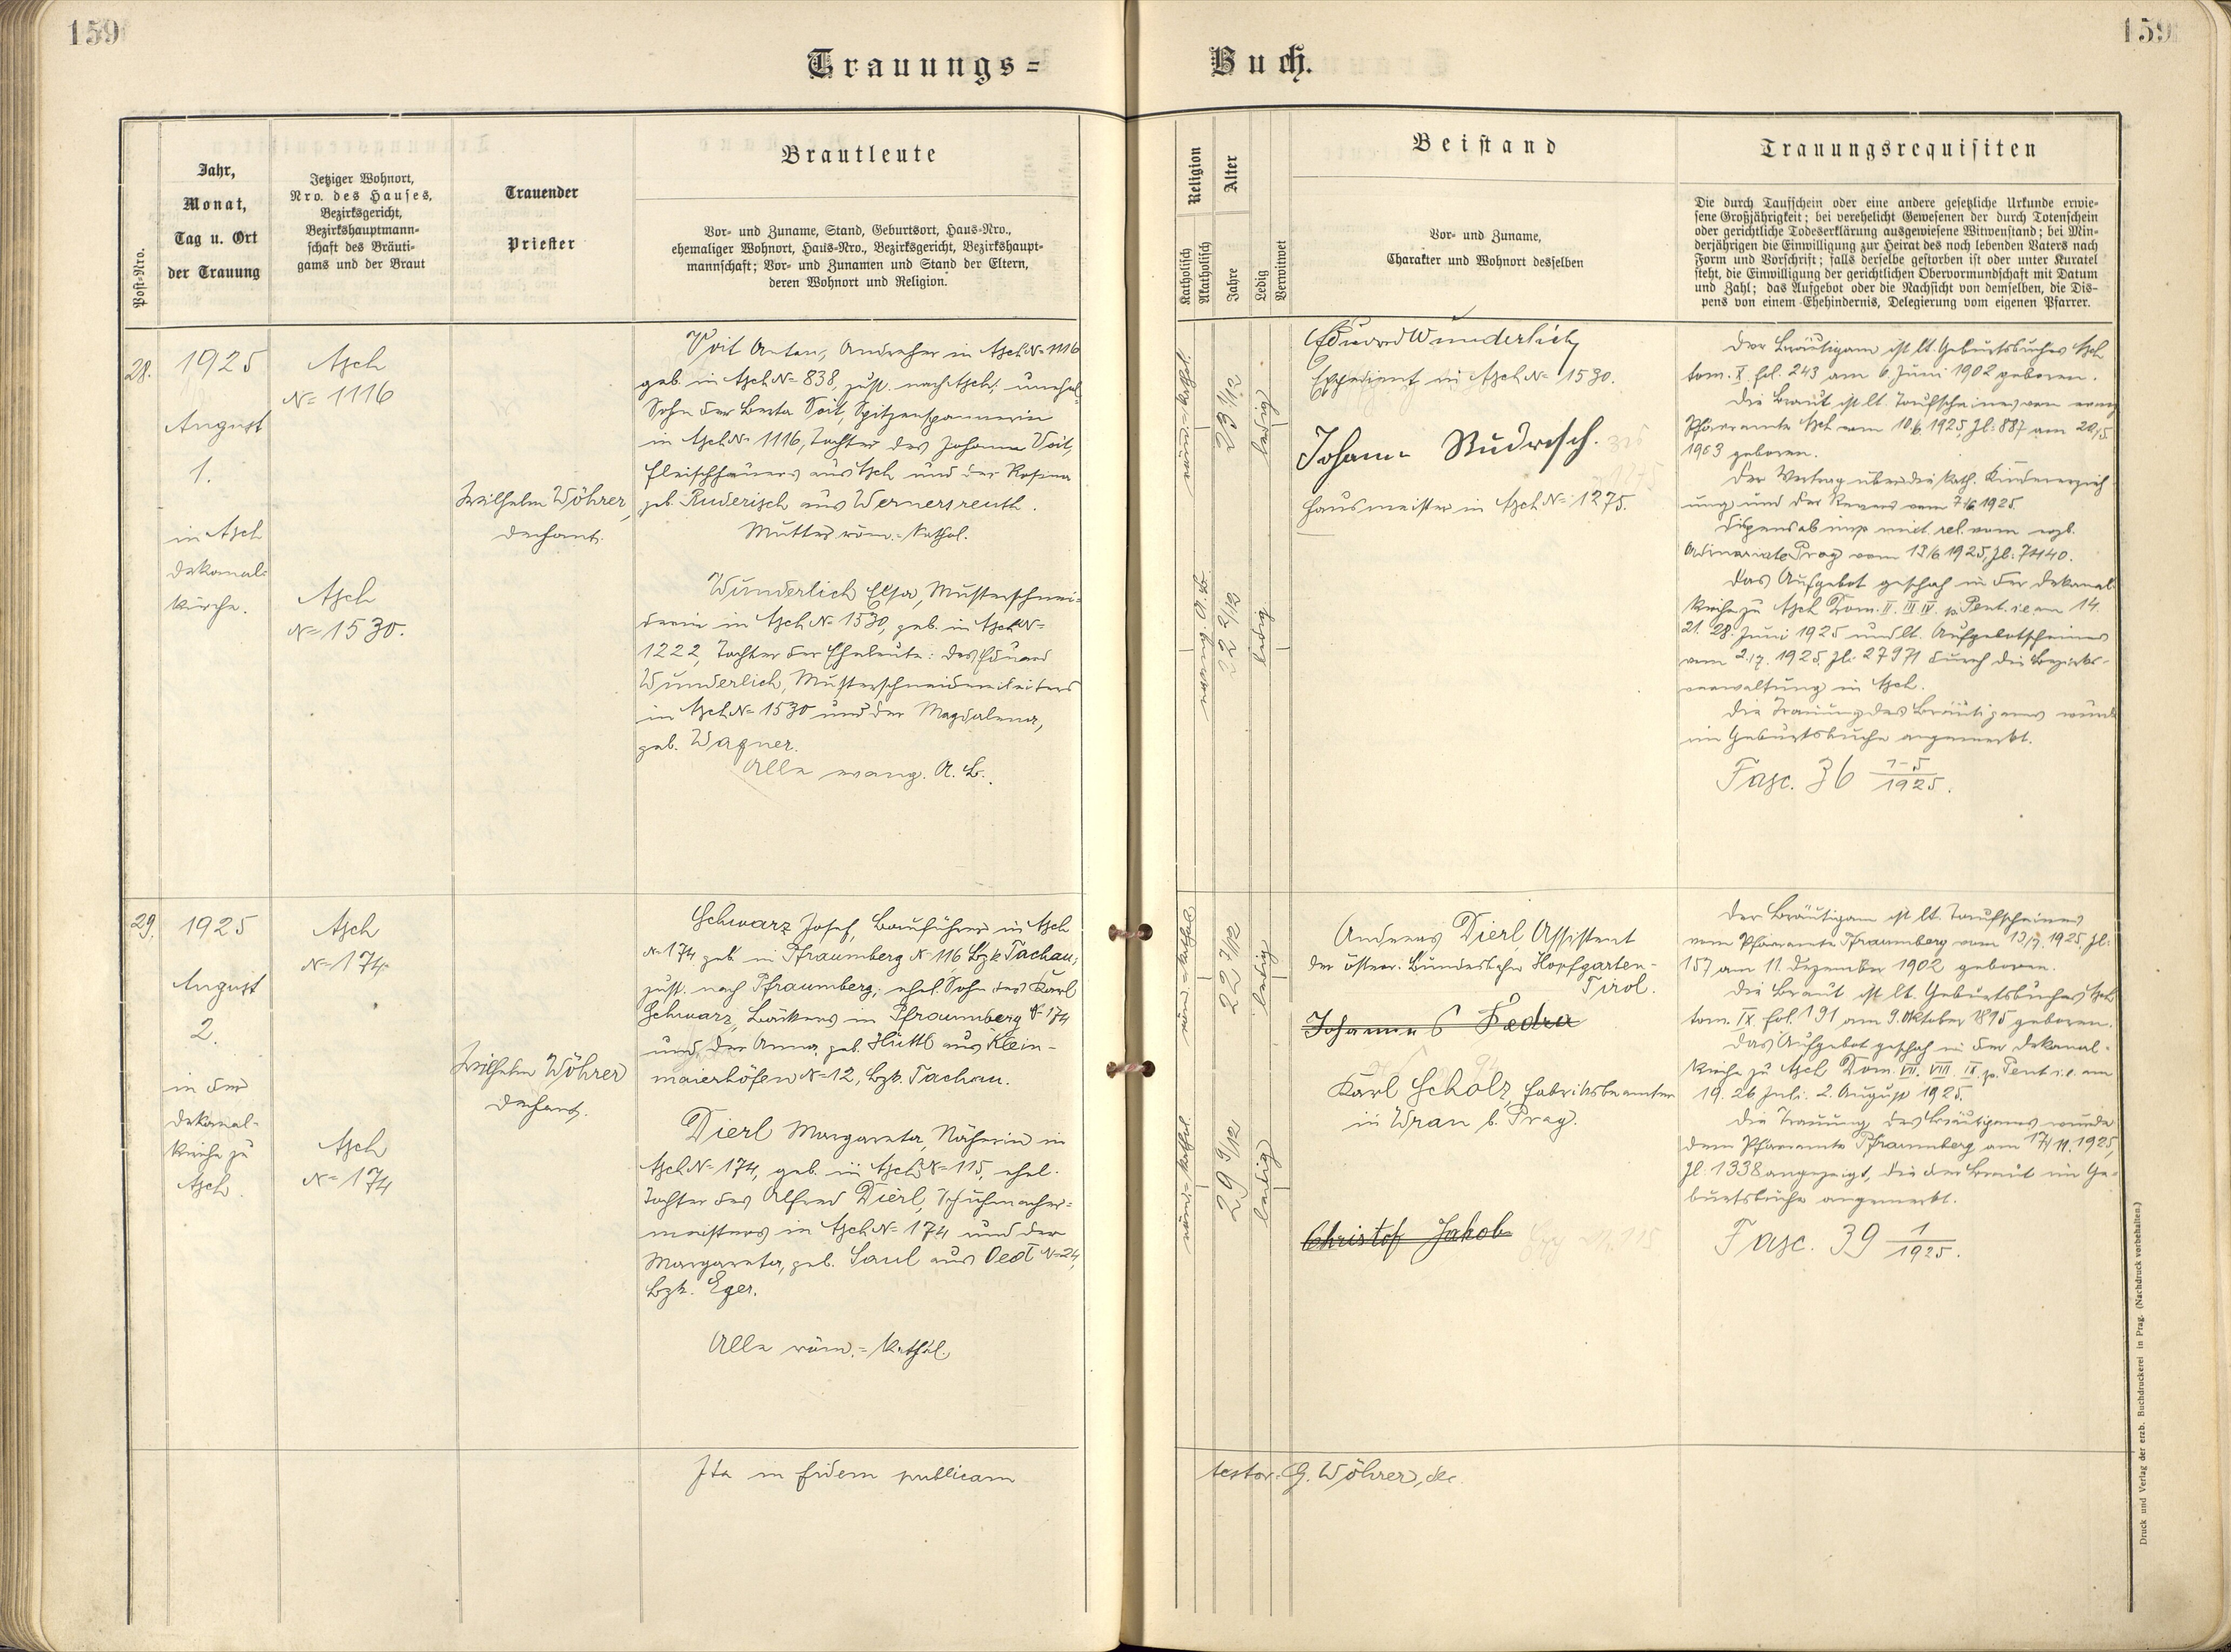 159
159
Trauungs=
Buch.
Post-Nro.
Jahr,
Monat,
Tag u. Ort
der Trauung
Jetziger Wohnort,
Nro. des Hauses,
Bezirksgericht,
Bezirkshauptmann-
schaft des Bräuti-
gams und der Braut
Trauender
Priester
Brautleute
Vor- und Zuname, Stand, Geburtsort, Haus-Nro.,
ehemaliger Wohnort, Haus-Nro., Bezirksgericht, Bezirkshaupt-
mannschaft; Vor- und Zunamen und Stand der Eltern,
deren Wohnort und Religion.
Religion
Katholisch
Akatholisch
Alter
Jahre
Ledig
Verwitwet
Beistand
Vor- und Zuname,
Charakter und Wohnort desselben
Trauungsrequisiten
Die durch Taufschein oder eine andere gesetzliche Urkunde erwie-
sene Großjährigkeit; bei verehelicht Gewesenen der durch Totenschein
oder gerichtliche Todeserklärung ausgewiesene Witwenstand; bei Min-
derjährigen die Einwilligung zur Heirat des noch lebenden Vaters nach
Form und Vorschrift; falls derselbe gestorben ist oder unter Kuratel
steht, die Einwilligung der gerichtlichen Obervormundschaft mit Datum
und Zahl; das Aufgebot oder die Nachsicht von demselben, die Dis-
pens von einem Ehehindernis, Delegierung vom eigenen Pfarrer.
28.
1925
August
1.
in Asch
Dekanal-
kirche.
Asch
N= 1116
Asch
N= 1530.
Wilhelm Wöhrer,
Dechant.
Voit Anton, Andreher in Asch N= 1116
geb. in Asch N= 838, zust. nach Asch, unehel.
Sohn der Berta Voit, Spitzenspannerin
in Asch N= 1116, Tochter des Johann Voit,
Fleischhauers aus Asch und der Rosina
geb. Ruderisch aus Wernersreuth.
Mutter röm.=kathol.
Wunderlich Elsa, Musterschnei-
derin in Asch N= 1530, geb. in Asch N=
1222, Tochter der Eheleute: des Eduard
Wunderlich, Musterschneidereileiters
in Asch N= 1530 und der Magdalena,
geb. Wagner.
Alle evang. A. B.
röm.=kathol.
evang. A. B.
23 1/12
22 2/12
ledig
ledig
Eduard Wunderlich
Expedient in Asch N= 1530.
Johann Rudrisch.
Hausmeister in Asch N= 1275.
Der Bräutigam ist lt. Geburtsbuches Asch
tom. X. fol. 243 am 6. Juni 1902 geboren.
Die Braut ist lt. Taufscheines vom evang.
Pfarramte Asch vom 10/6 1925, Zl. 887 am 20/5.
1903 geboren.
Der Vertrag über die kath. Kindererzieh
ung und der Revers vom 7/6 1925.
Dispens ab imp. mixt. rel. vom erzb.
Ordinariate Prag vom 13/6 1925, Zl. 7440.
Das Aufgebot geschah in der Dekanal-
kirche zu Asch Dom. II. III. IV. p. Pent. i. e. am 14.
21. 28. Juni 1925 und lt. Aufgebotscheines
vom 2./7. 1925, Zl. 27971 durch die Bezirks-
verwaltung in Asch.
Die Trauung des Bräutigams wurde
im Geburtsbuche angemerkt.
Fasc. 36 1-5/1925.
29.
1925
August
2.
in der
Dekanal-
kirche zu
Asch.
Asch
N= 174
Asch
N= 174
Wilhelm Wöhrer
Dechant.
Schwarz Josef, Bauführer in Asch
N= 174, geb. in Pfraumberg N= 116 Bzk. Tachau,
zust. nach Pfraumberg, ehel. Sohn des Karl
Schwarz, Bäckers in Pfraumberg N= 174
und der Anna, geb. Hüttl aus Klein-
maierhöfen N= 12, Bzk. Tachau.
Dierl Margareta, Näherin in
Asch N= 174, geb. in Asch N= 115, ehel.
Tochter des Alfred Dierl, Schuhmacher-
meisters in Asch N= 174 und der
Margareta, geb. Saul aus Oedt N= 24,
Bzk. Eger.
Alle röm.=kathol.
röm.=kathol.
röm.=kathol.
22 7/12
29 9/12
ledig
ledig
Andreas Dierl, Assistent
der österr. Bundesbahn Hopfgarten-
Tirol.
Karl Scholz, Fabriksbeamter
in Wran b. Prag.
Christof Jakob
Der Bräutigam ist lt. Taufscheines
vom Pfarramte Pfraumberg vom 13/7. 1925, Zl.
157 am 11. Dezember 1902 geboren.
Die Braut ist lt. Geburtsbuches Asch
tom. IX. fol. 191 am 9. Oktober 1895 geboren.
Das Aufgebot geschah in der Dekanal-
kirche zu Asch Dom. VII. VIII. IX. p. Pent. i. e. am
19. 26. Juli. 2. August 1925.
Die Trauung des Bräutigams wurde
dem Pfarramte Pfraumberg am 17/11. 1925,
Zl. 1338 angezeigt, die der Braut im Ge-
burtsbuche angemerkt.
Fasc. 39 1/1925.
Ita in fidem publicam
testor. G. Wöhrer, dec.
Druck und Verlag der erzb. Buchdruckerei in Prag. (Nachdruck vorbehalten.)